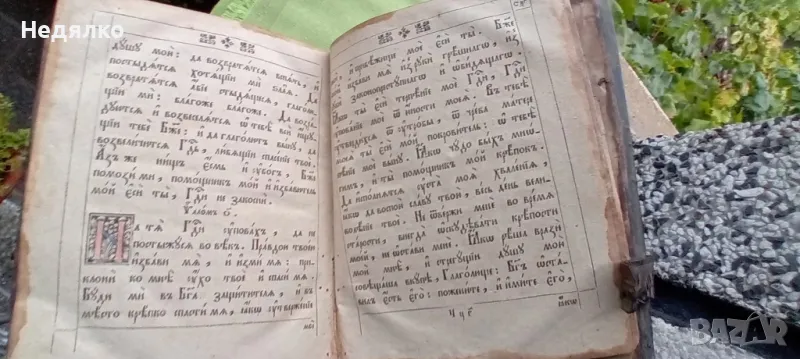 Недялко
дꙋшꙋ мою̀: да возвратѧ́тсѧ вспѧ́ть, и҆
постыдѧ́тсѧ хотѧ́щїи мѝ ѕла̑ѧ. Да
возвратѧ́тсѧ а҆́бїе стыдѧ́щесѧ, глаго́лю
щїи мѝ: бла́гоже бла́гоже. Да возра́
дꙋютсѧ и҆ возвеселѧ́тсѧ ѡ҆ тебѣ̀ всѝ и҆́щꙋ
щїи тебѐ Бж҃е: и҆ да глаго́лютъ вы́нꙋ, да
возвели́читсѧ Гдⷭ҇ь, лю́бѧщїи спасе́нїе твоѐ.
А҆́зъ же ни́щъ є҆́смь и҆ ᲂу҆бо́гъ, Бж҃е
помози́ ми, помо́щникъ мо́й и҆ и҆зба́витель
мо́й є҆сѝ ты̀, Гдⷭ҇и не закоснѝ.
Ѱало́мъ о҃.
На тѧ̀ Гдⷭ҇и ᲂу҆пова́хъ, да не
постыжꙋ́сѧ во вѣ́къ. Пра́вдою твое́ю
и҆зба́ви мѧ̀, и҆ и҆зми́ мѧ: при
клонѝ ко мнѣ̀ ᲂу҆́хо твоѐ и҆ спаси́ мѧ.
Бꙋ́ди мѝ въ Бг҃а защити́телѧ, и҆ въ
мѣ́сто крѣ́пко спасти́ мѧ, ꙗ҆́кѡ ᲂу҆твержде́нїе
моѐ
и҆ прибѣ́жище моѐ є҆сѝ ты̀. Бж҃е
мо́й и҆зба́ви мѧ̀ и҆зъ рꙋкѝ грѣ́шнагѡ, и҆з
законопрестꙋ́пнагѡ и҆ ѡ҆би́дѧщагѡ.
Ꙗ҆́кѡ ты̀ є҆сѝ терпѣ́нїе моѐ Гдⷭ҇и, Гдⷭ҇и
ᲂу҆пова́нїе моѐ ѿ ю҆́ности моеѧ̀. Въ тебѣ̀
ᲂу҆тверди́хсѧ ѿ ᲂу҆тро́бы, ѿ чре́ва ма́тере
моеѧ̀ ты̀ є҆сѝ мо́й покрови́тель: ѡ҆ тебѣ̀
пѣ́нїе моѐ вы́нꙋ. Ꙗ҆́кѡ чꙋ́до бы́хъ мнѡ́
гимъ, и҆ ты̀ помо́щникъ мо́й крѣ́покъ.
Да и҆спо́лнѧтсѧ ᲂу҆ста̀ моѧ̀ хвале́нїѧ,
ꙗ҆́кѡ да воспою̀ сла́вꙋ твою̀, ве́сь де́нь вели
колѣ́пїе твоѐ. Не ѿве́ржи менѐ во вре́мѧ
ста́рости, внегда̀ ѡ҆скꙋдѣва́ти крѣ́пости
мое́й, не ѡ҆ста́ви менѐ. Ꙗ҆́кѡ рѣ́ша вразѝ
моѝ мнѣ̀, и҆ стрегꙋ́щїи дꙋ́шꙋ мою̀
совѣща́ша вкꙋ́пѣ, Глаго́лющи: Бг҃ъ ѡ҆ста́
вилъ є҆́сть є҆го̀: пожени́те, и҆ и҆ми́те є҆го̀,
ꙗ҆́кѡ
BAZAR